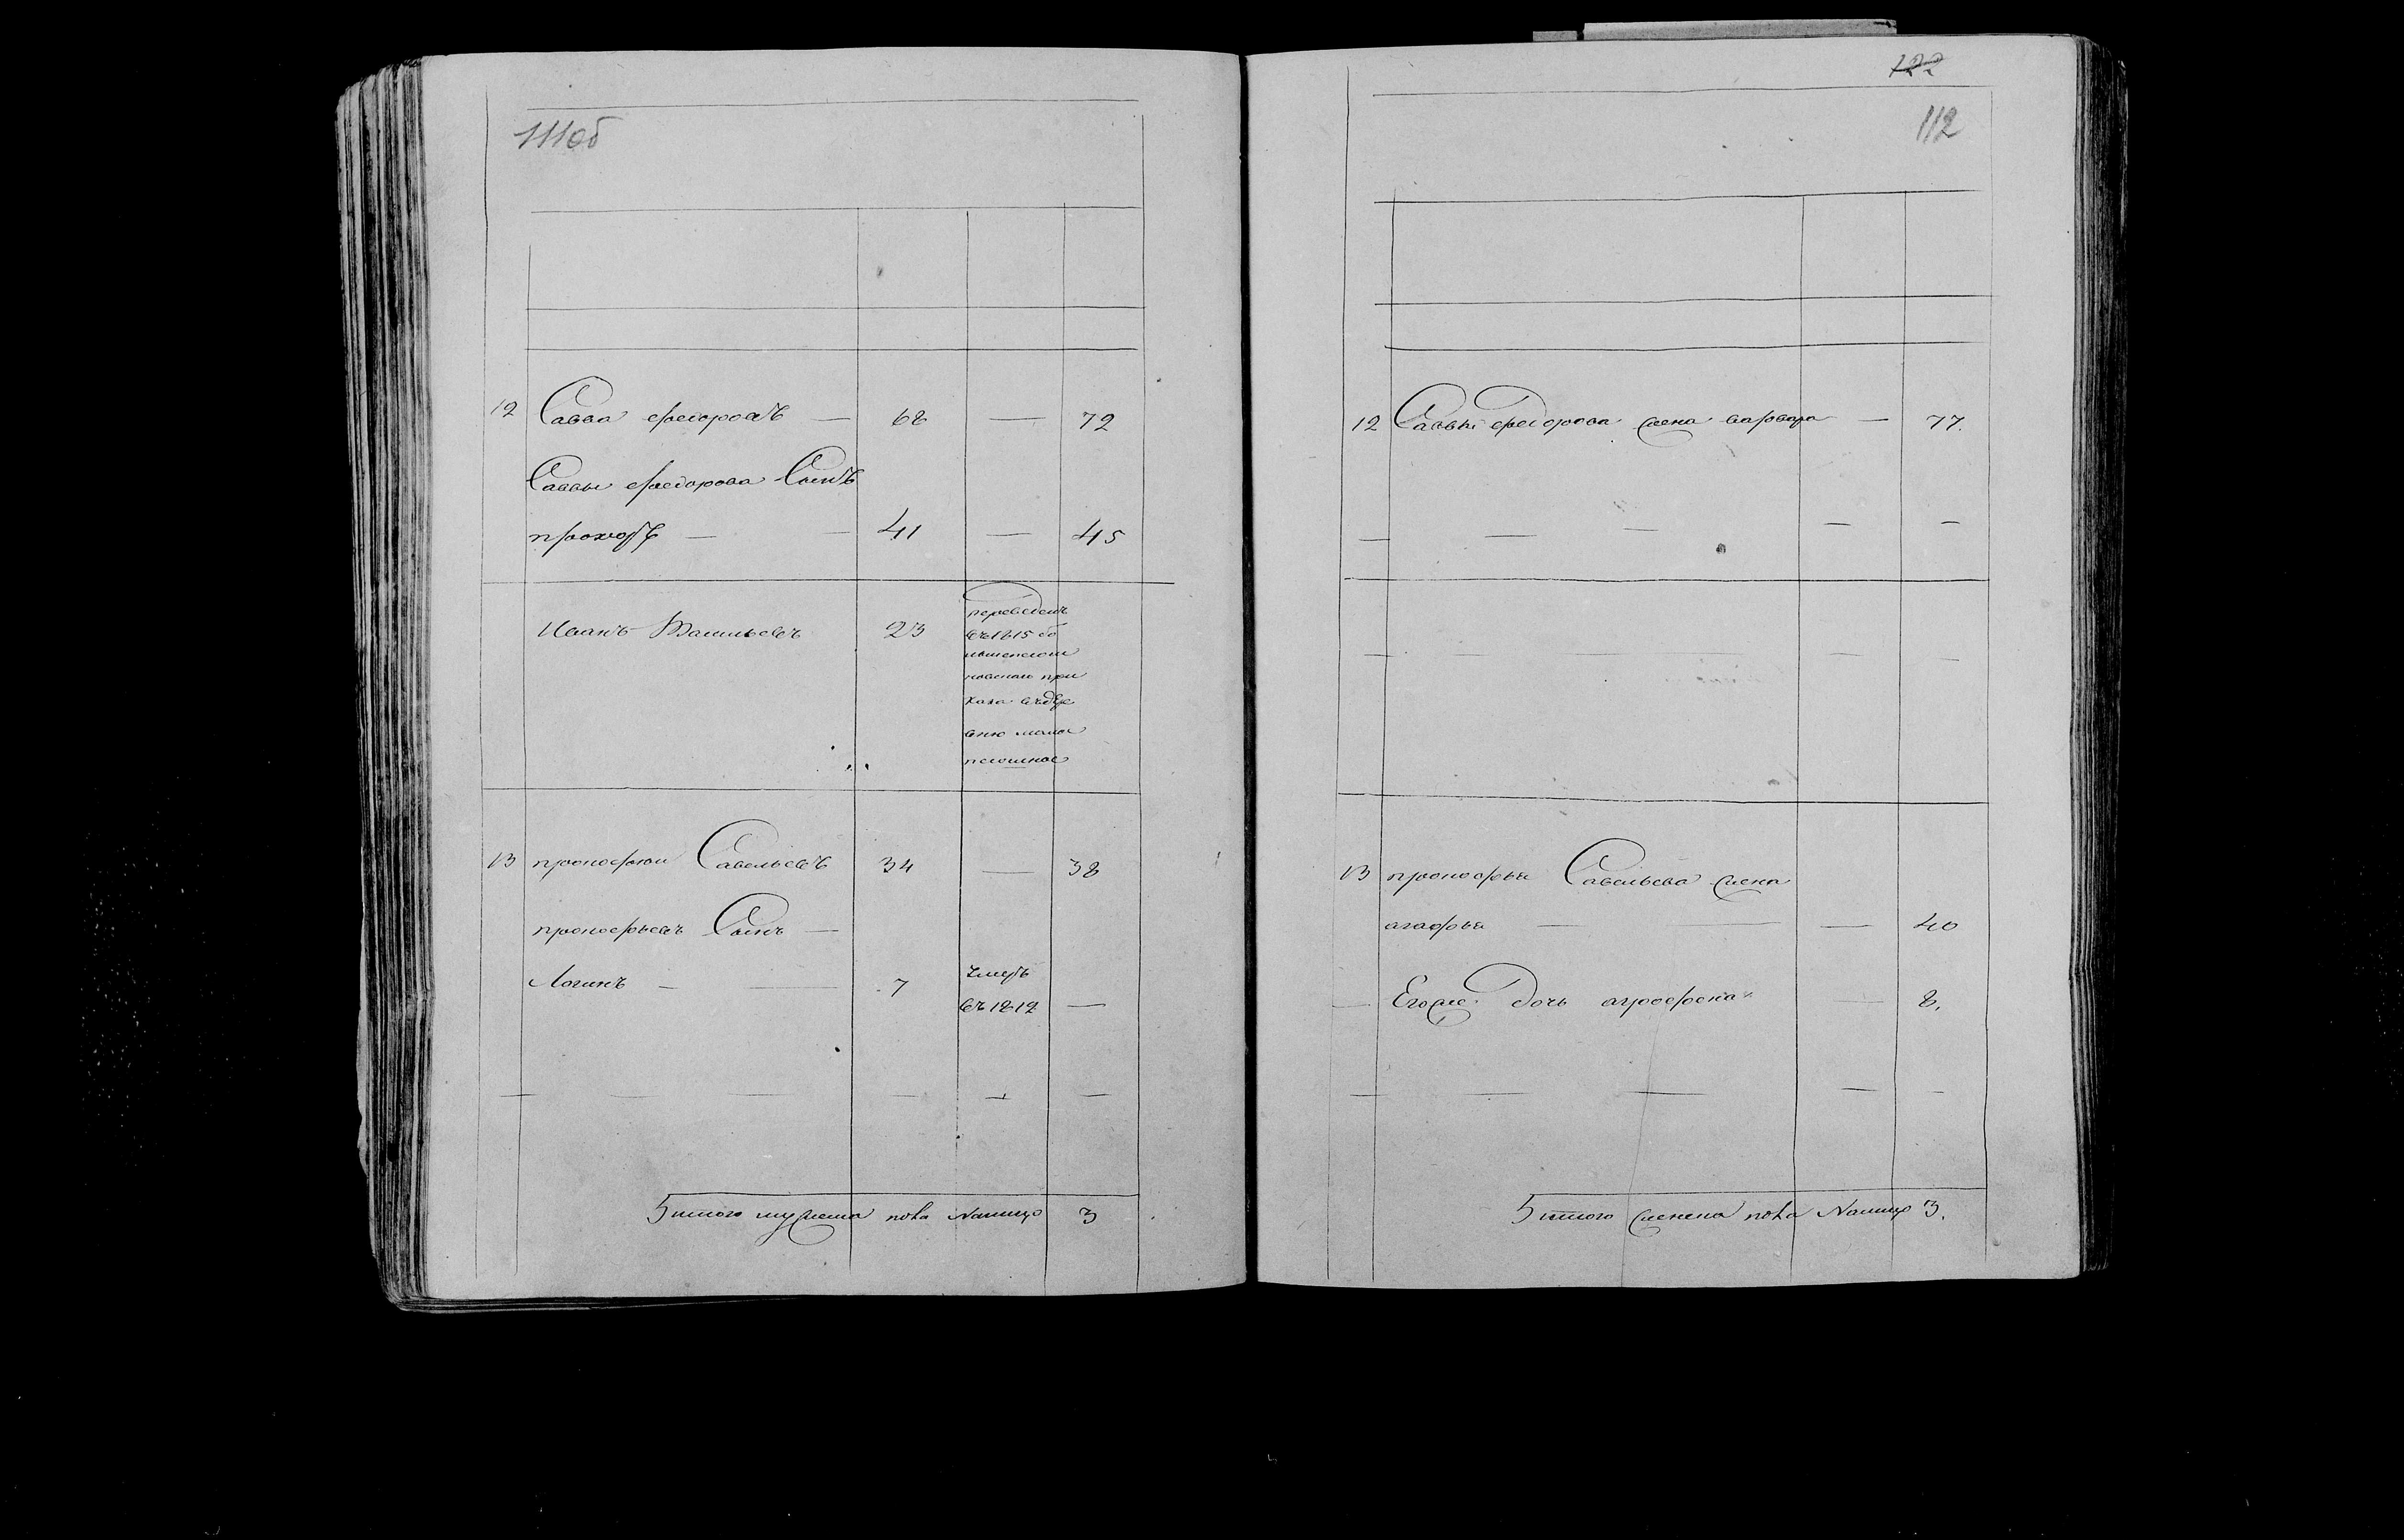 111об
12 Савва федоровъ — 68 — 72
Саввы федорова Сынъ
прохоръ — 41 — 45
Иванъ Васильевъ 23
переведенъ
въ 1815 во
новского при
каза въ дере
вню малое
13 прокофеи Савельевъ 34 — 38
прокофьевъ Сынъ —
Логинъ — 7
умеръ
въ 1812 —
Итого мужеска пола Налицо 3
122
112
12 Саввы федорова жена варвара — 77.
13 прокофья Савельева жена
агафья — — 40
Егоже дочь агрофена — 8.
Итого женска пола Налицо 3.